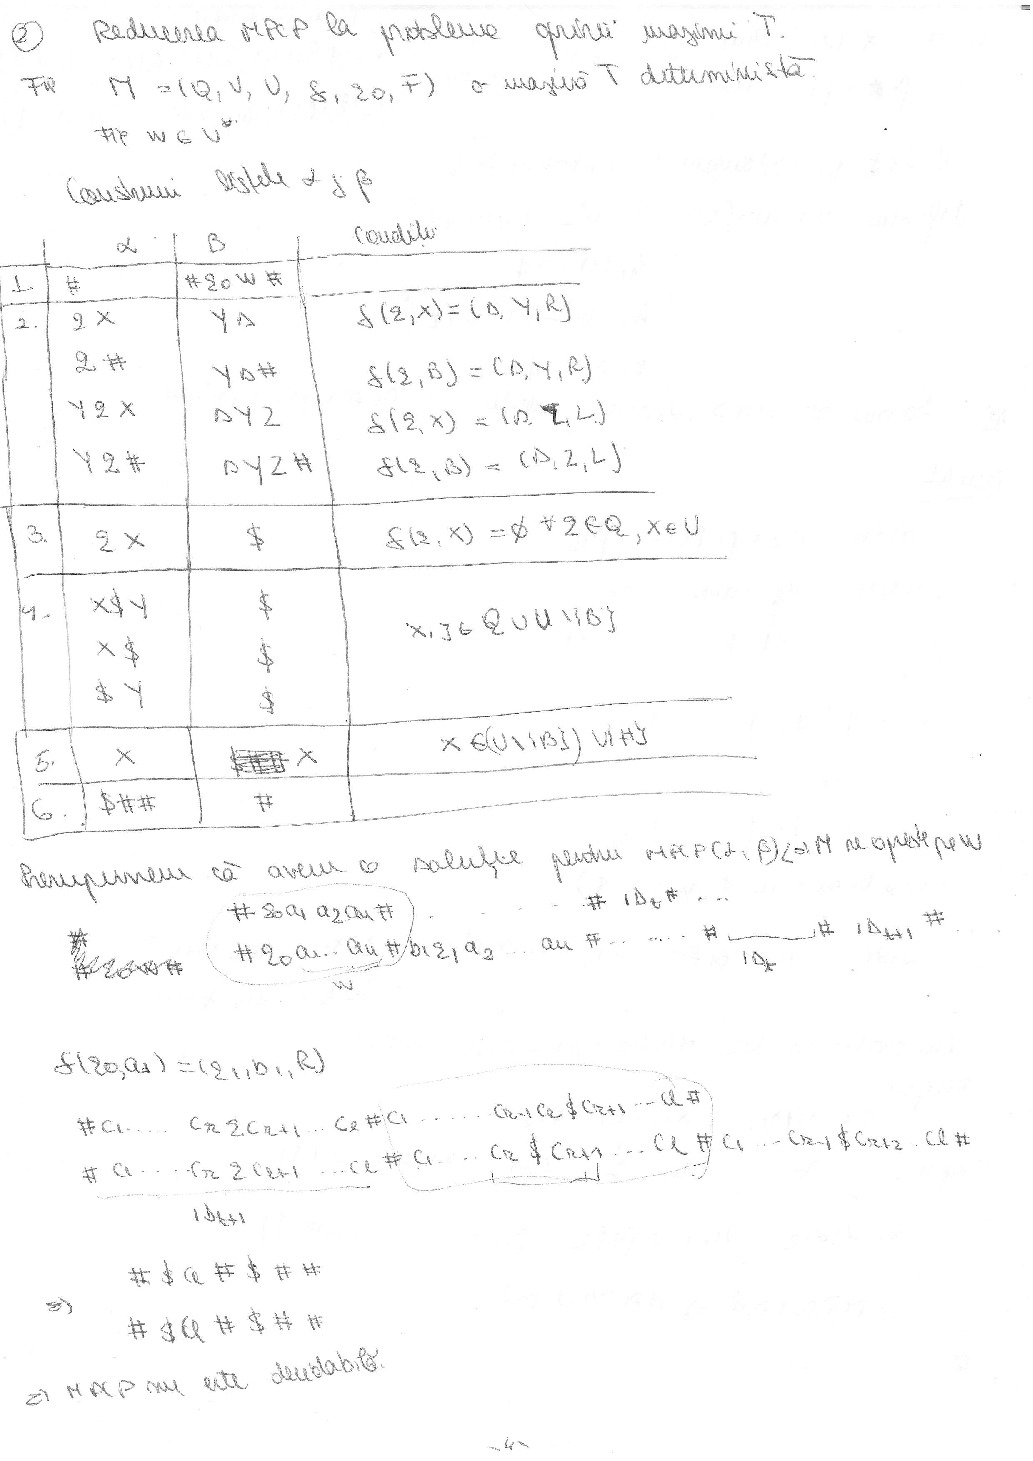 ② Reducerea MPCP la problema opririi mașinii T.
Fie M = (Q, V, U, δ, q0, F) o mașină T deterministă.
Fie w ∈ V*
Construim listele α și β
α | B | Condiții
1. | # | #q0w# |
2. | qX | Ys | δ(q,X)=(s,Y,R)
q# | Ys# | δ(q,B) = (s,Y,R)
YqX | sYZ | δ(q,X) = (s,Z,L)
Yq# | sYZ# | δ(q,B) = (s,Z,L)
3. | qX | $ | δ(q,X) = ∅ ∀q∈Q, X∈U
4. | X$Y | $ | X,Y ∈ Q∪U\{B}
X$ | $
$Y | $
5. | X | X | X ∈(U\{B}) ∪{#}
6. | $## | # |
Presupunem că avem o soluție pentru MPCP(α,β)<=>M se oprește pe w
#q0a1 a2an# . . . . . . . # IDt# ...
#q0a1...an#b1q1a2 ... an #........ # # IDt+1 #...
w IDt
δ(q0,a1)=(q1,b1,R)
#c1.... ck q ck+1 ... cl #c1 ...... ck-1ck$ck+1...cl#
# c1....ck q ck+1 ...cl # c1....ck $ ck+1....cl # c1 ...ck-1$ck+2..cl#
IDt+1
# $ cl # $ # #
=>
# $cl # $ # #
=> MPCP nu este decidabilă.
-4-